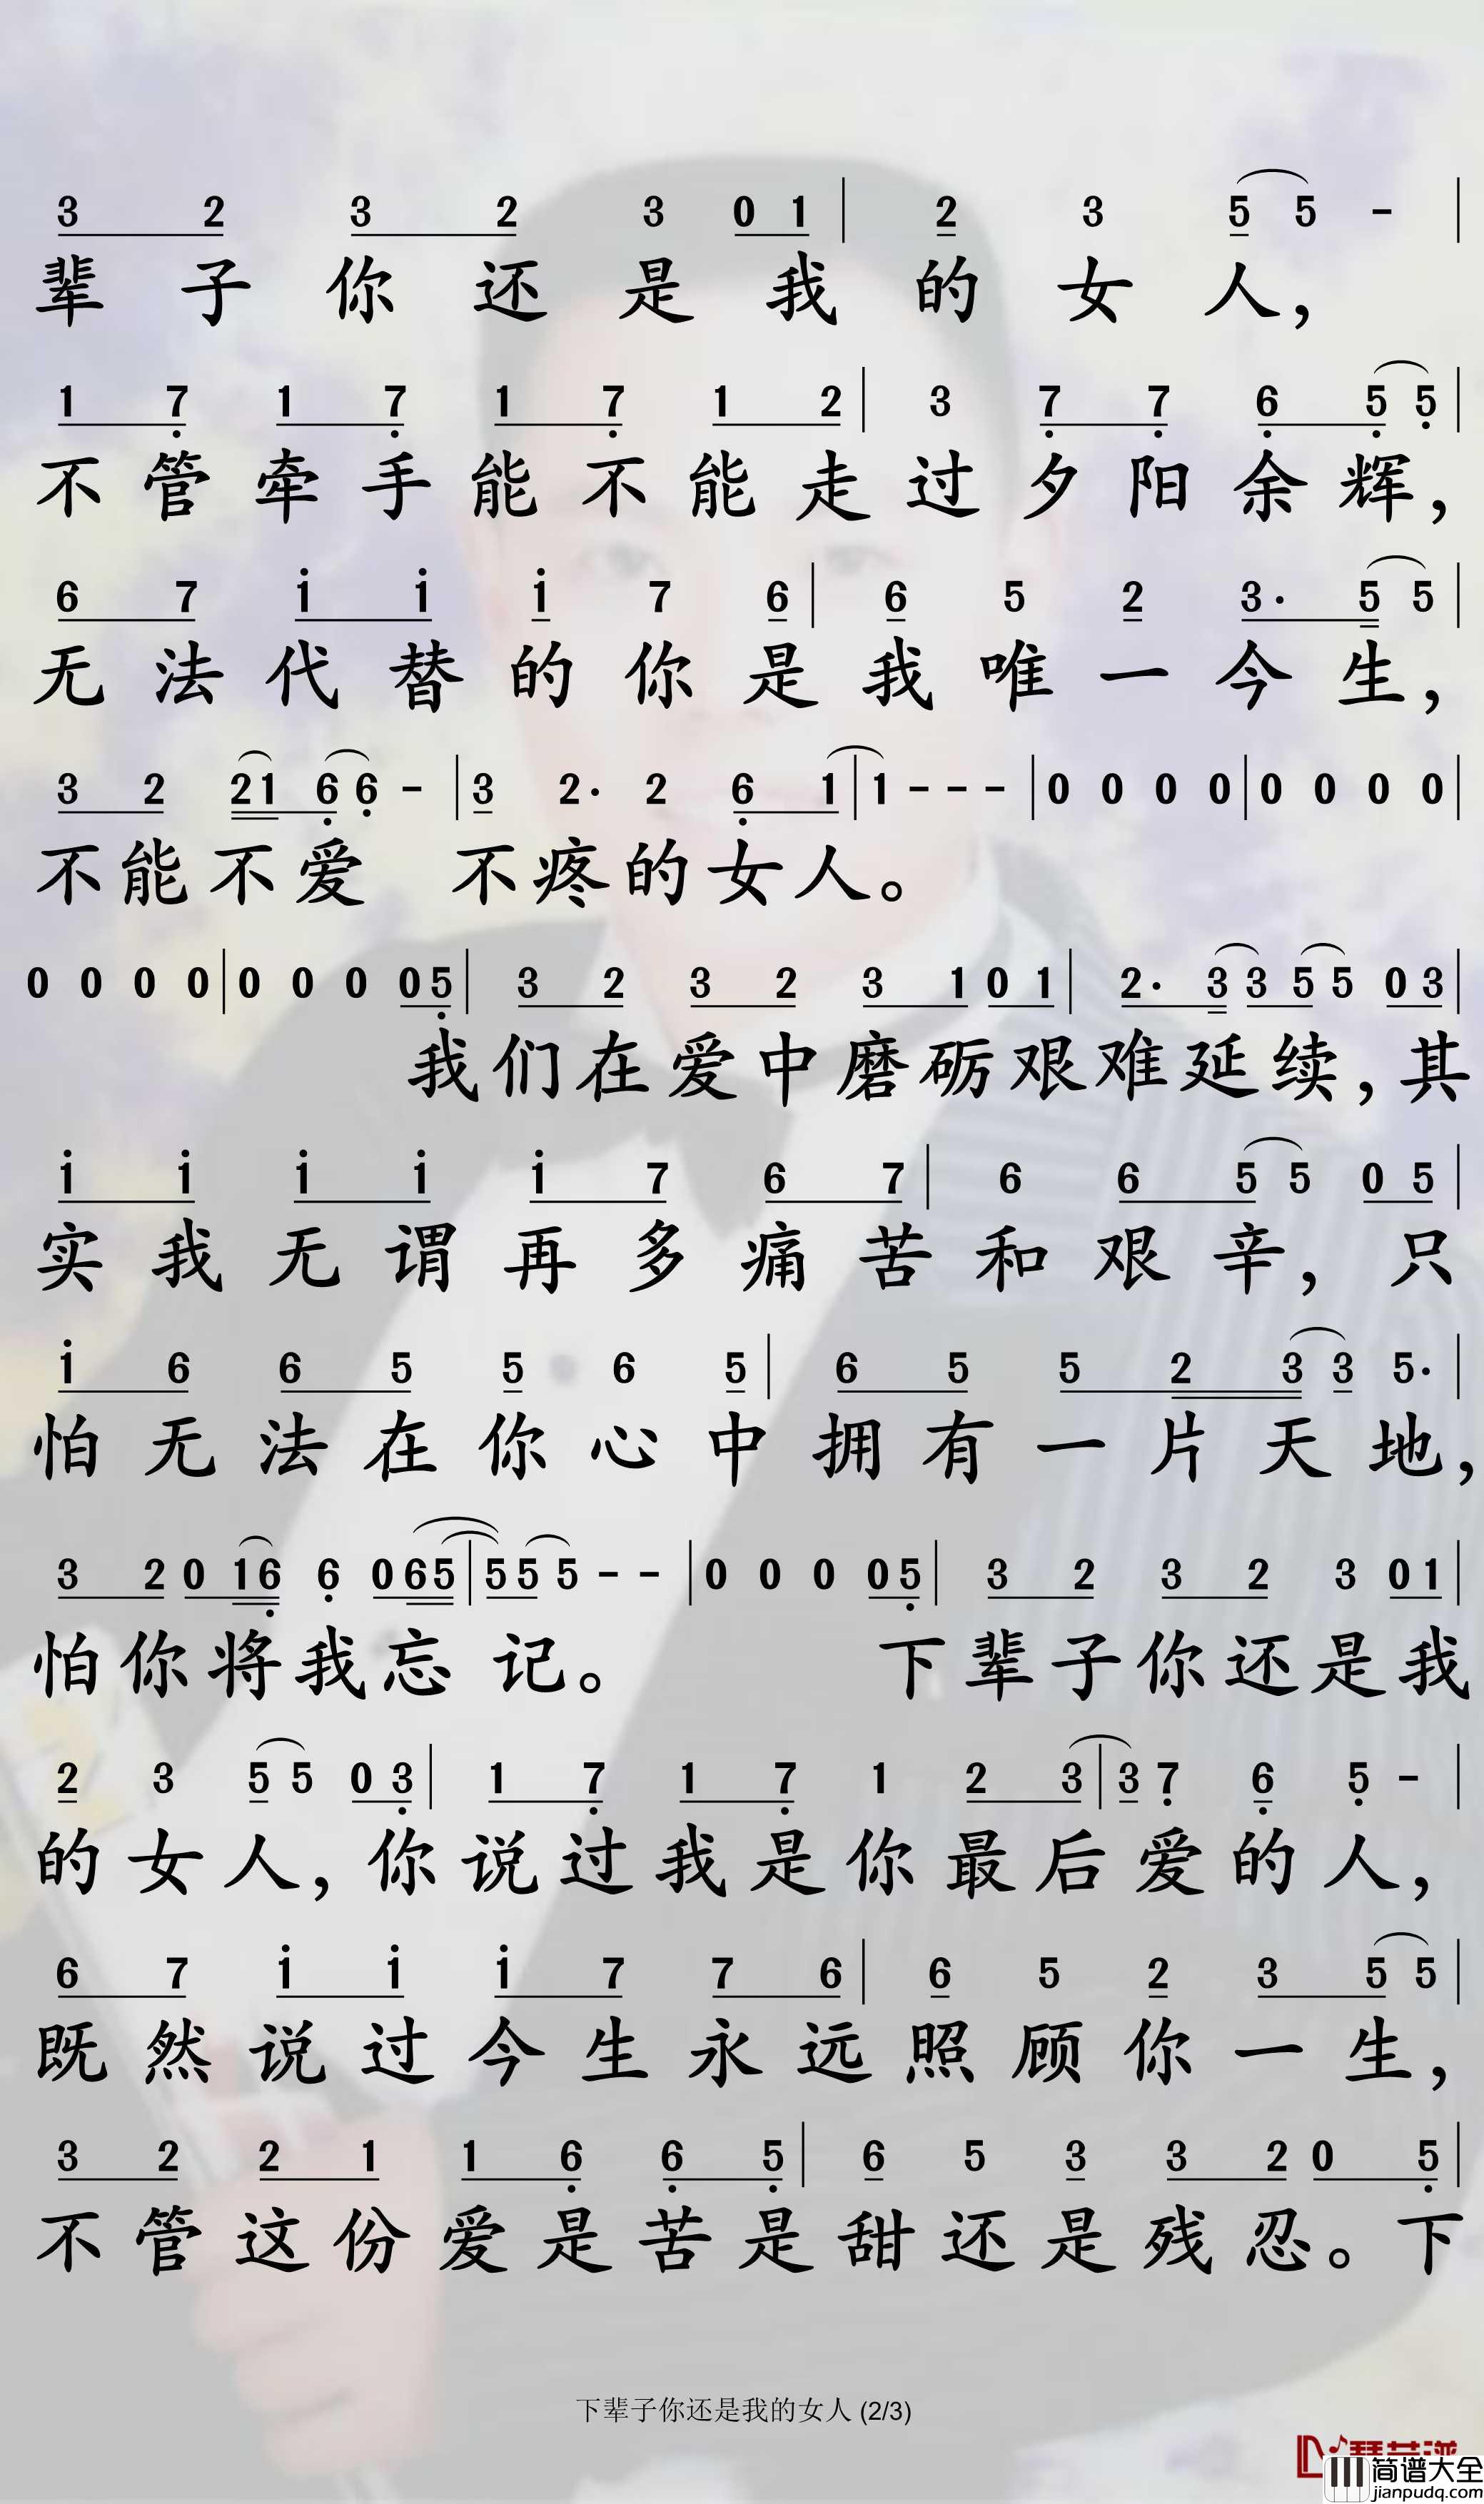 3 2 3 2 3 0 1 | 2 3 5 5 - |
辈子你还是我的女人，
1 7 1 7 1 7 1 2 | 3 7 7 6 5 5 |
不管牵手能不能走过夕阳余辉，
6 7 i i i 7 6 | 6 5 2 3· 5 5 |
无法代替的你是我唯一今生，
3 2 2 1 6 6 - | 3 2· 2 6 1 | 1 - - - | 0 0 0 0 | 0 0 0 0 |
不能不爱 不疼的女人。
0 0 0 0 | 0 0 0 0 5 | 3 2 3 2 3 1 0 1 | 2· 3 3 5 5 0 3 |
我们在爱中磨砺艰难延续，其
i i i i i 7 6 7 | 6 6 5 5 0 5 |
实我无谓再多痛苦和艰辛，只
i 6 6 5 5 6 5 | 6 5 5 2 3 3 5· |
怕无法在你心中拥有一片天地，
3 2 0 1 6 6 0 6 5 | 5 5 5 - - | 0 0 0 0 5 | 3 2 3 2 3 0 1 |
怕你将我忘 记。 下辈子你还是我
2 3 5 5 0 3 | 1 7 1 7 1 2 3 | 3 7 6 5 - |
的女人，你说过我是你最后爱的人，
6 7 i i i 7 7 6 | 6 5 2 3 5 5 |
既然说过今生永远照顾你一生，
3 2 2 1 1 6 6 5 | 6 5 3 3 2 0 5 |
不管这份爱是苦是甜还是残忍。下
下辈子你还是我的女人 (2/3)
简谱大全
jianpudq.com